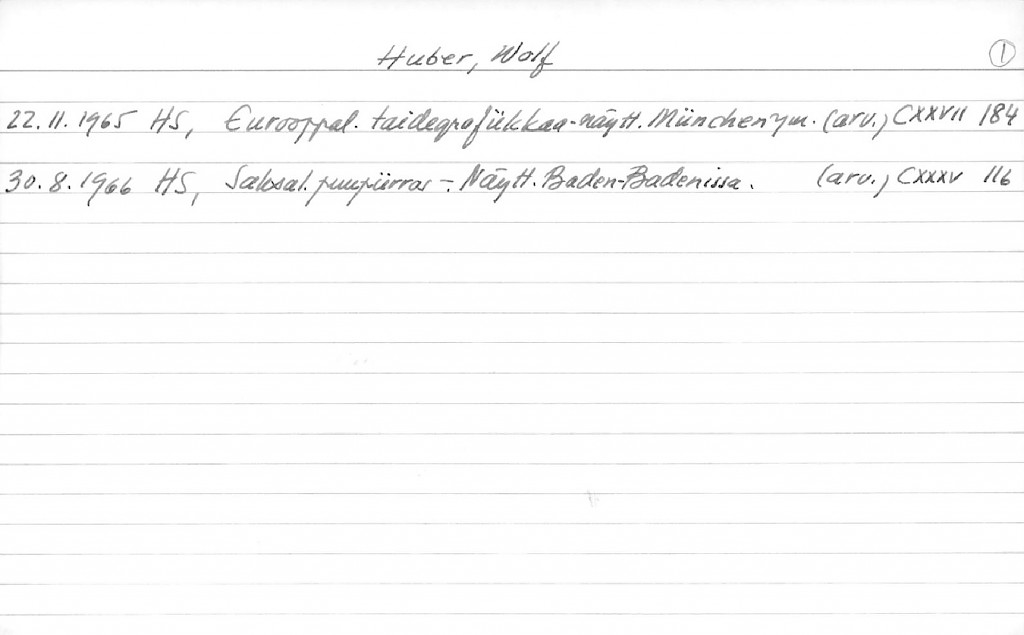 Huber, Wolf ①
22.11.1965 HS, Eurooppal. taidegrafiikkaa-näytt. München ym. (arv.) CXXVII 184
30.8.1966 HS, Saksal. puupiirros - Näytt. Baden-Badenissa. (arv.) CXXXV 116